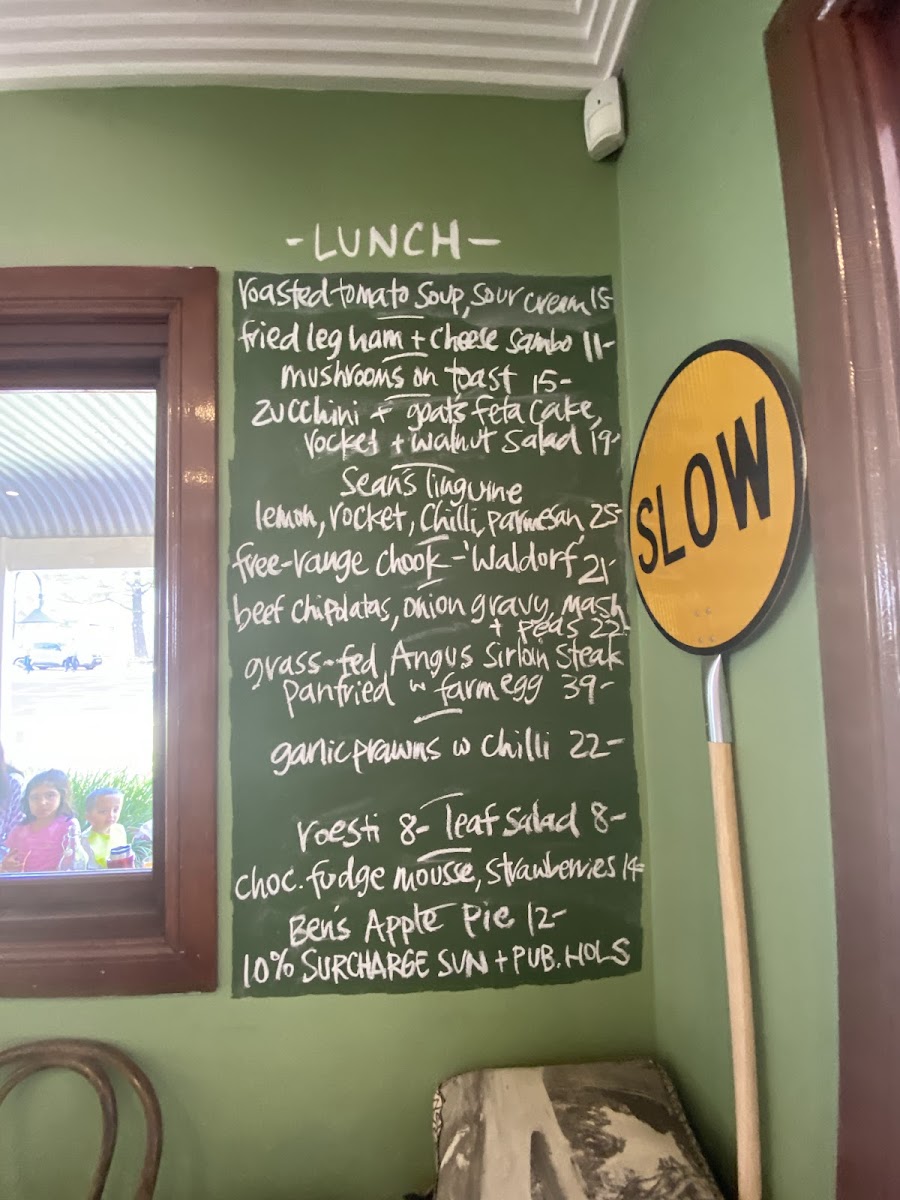 -LUNCH-
roasted tomato soup, sour cream 15-
fried leg ham + cheese sambo 11-
mushrooms on toast 15-
zucchini + goat's feta cake,
rocket + walnut salad 19-
Sean's linguine
lemon, rocket, chilli, parmesan, 25-
free-range chook - 'Waldorf' 21-
beef chipolatas, onion gravy, mash
+ peas 22-
grass-fed Angus Sirloin Steak
panfried w farm egg 39-
garlic prawns w chilli 22-
roesti 8- leaf salad 8-
choc. fudge mousse, strawberries 14-
Ben's Apple Pie 12-
10% SURCHARGE SUN + PUB. HOLS
SLOW